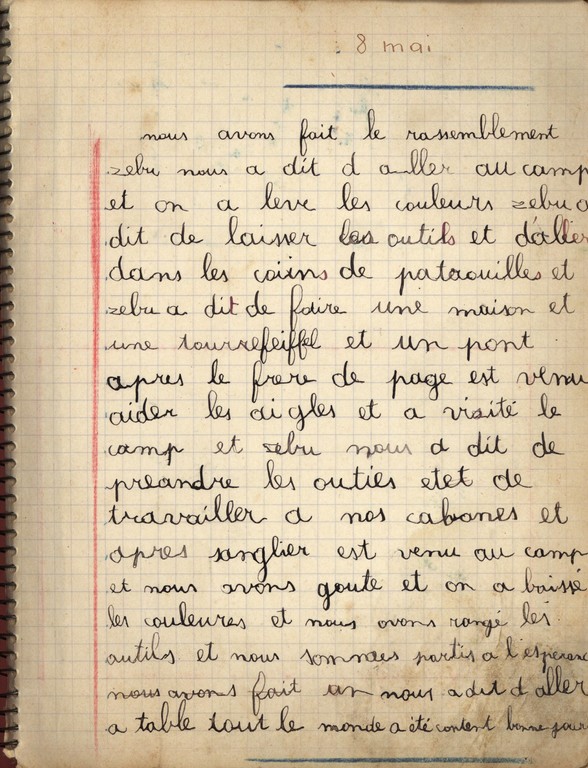 8 mai
nous avons fait le rassemblement
zebu nous a dit d aller au camp
et on a leve les couleurs zebu a
dit de laisser les outils et d'aller
dans les coiins de patrouilles et
zebu a dit de faire une maison et
une tourrefeiffel et un pont
apres le frere de page est venu
aider les aigles et a visité le
camp et zebu nous a dit de
preandre les outies etet de
travailler a nos cabanes et
apres sanglier est venu au camp
et nous avons goute et on a baissé
les couleures et nous avons rangé les
outils et nous sommes partis a l'esperance
nous avons fait un nous a dit d aller
a table tout le monde a été content bonne jour